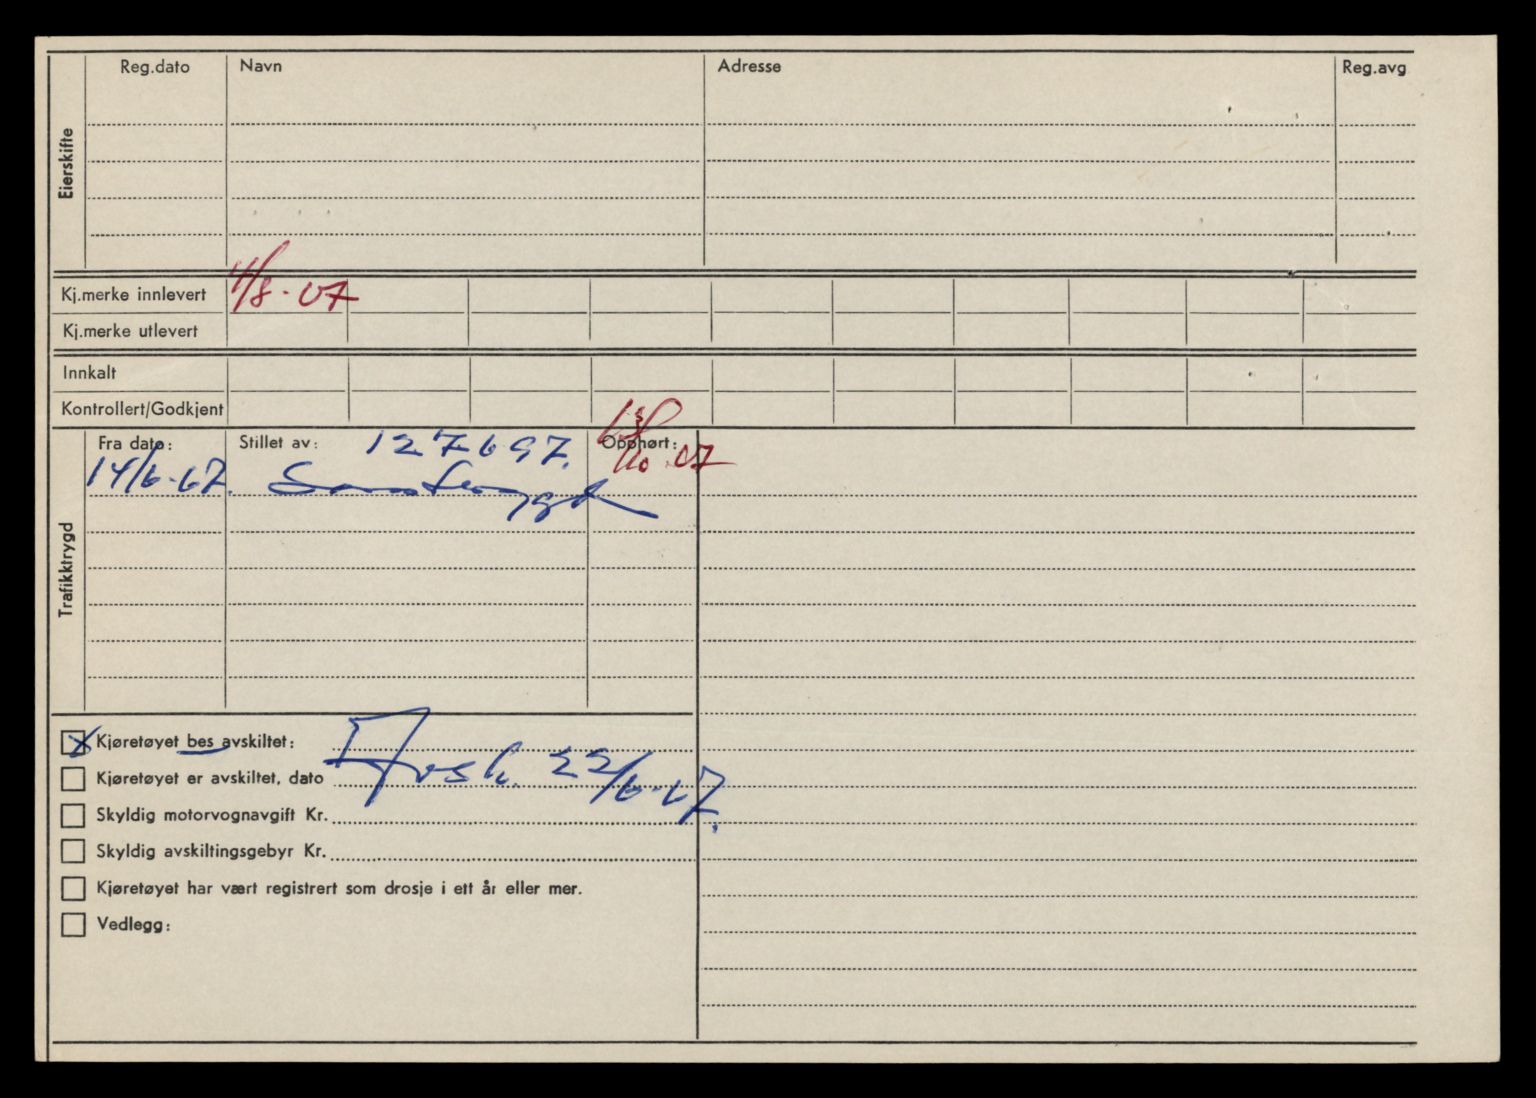 Reg.dato Navn Adresse Reg.avg
Eierskifte
Kj.merke innlevert 4/8-67
Kj.merke utlevert
Innkalt
Kontrollert/Godkjent
Trafikktrygd
Fra dato: Stillet av: 127697. Opphørt:
14/6-67. Samtrygd
Kjøretøyet bes avskiltet:
Kjøretøyet er avskiltet, dato 22/6-67.
Skyldig motorvognavgift Kr.
Skyldig avskiltingsgebyr Kr.
Kjøretøyet har vært registrert som drosje i ett år eller mer.
Vedlegg: